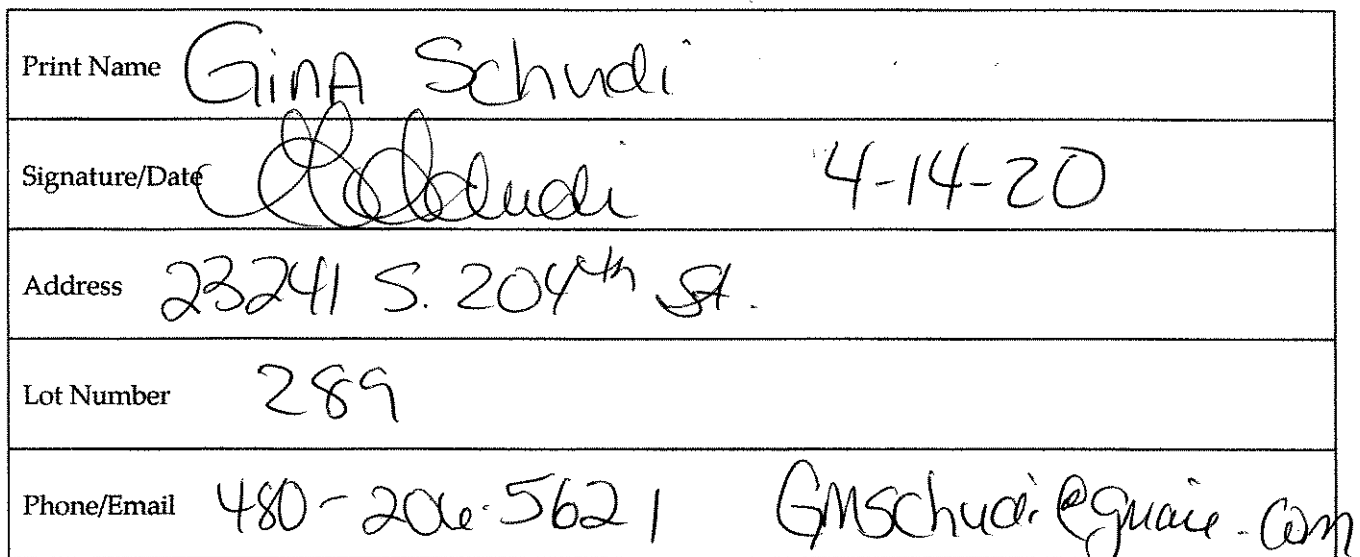 Print Name GinA Schudi
Signature/Date GSchudi 4-14-20
Address 23241 S. 204th St.
Lot Number 289
Phone/Email 480-206-5621 GMSchudi@gmail.com